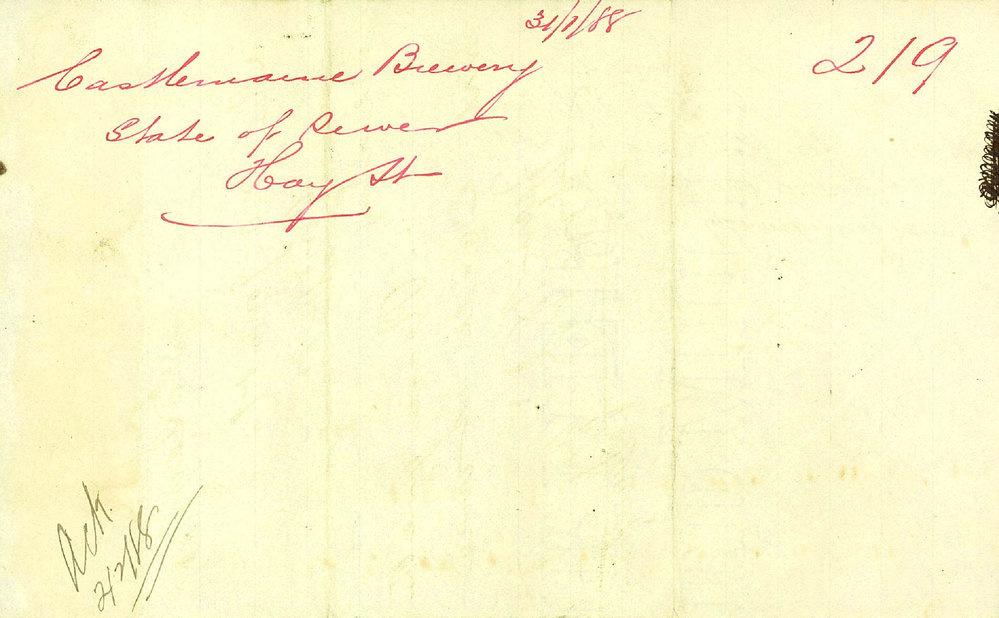 31/1/88
219
Castlemaine Brewery
State of Sewer
Hay St
Ack.
2/2/88